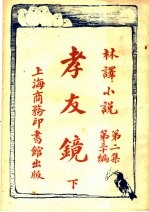 林譯小説
第二集
第二十編
孝友鏡
下
上海商務印書館出版